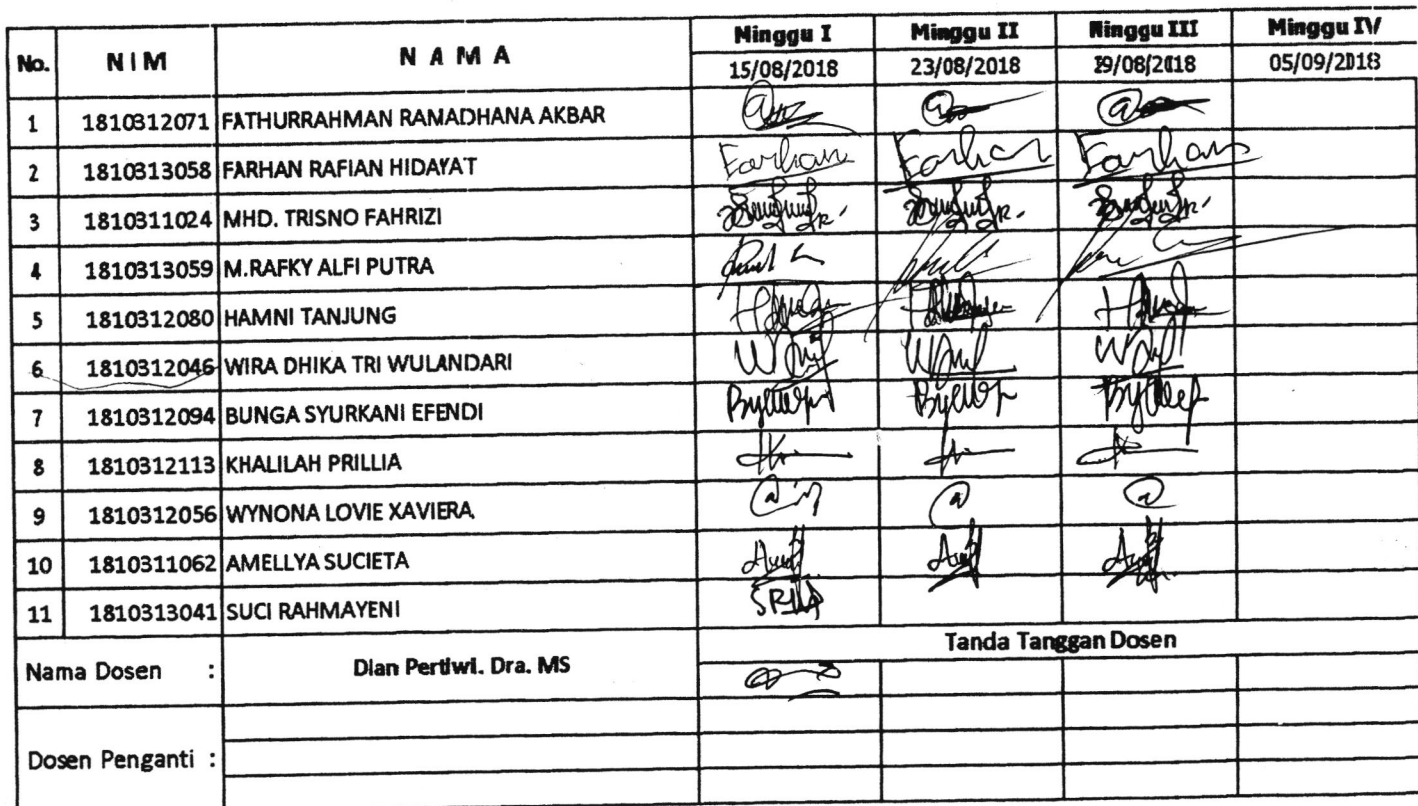 No. NIM NAMA Minggu I Minggu II Minggu III Minggu IV
15/08/2018 23/08/2018 29/08/2018 05/09/2018
1 1810312071 FATHURRAHMAN RAMADHANA AKBAR
2 1810313058 FARHAN RAFIAN HIDAYAT Farhan Farhan Farhan
3 1810311024 MHD. TRISNO FAHRIZI
4 1810313059 M.RAFKY ALFI PUTRA
5 1810312080 HAMNI TANJUNG
6 1810312046 WIRA DHIKA TRI WULANDARI
7 1810312094 BUNGA SYURKANI EFENDI
8 1810312113 KHALILAH PRILLIA
9 1810312056 WYNONA LOVIE XAVIERA
10 1810311062 AMELLYA SUCIETA
11 1810313041 SUCI RAHMAYENI
Tanda Tanggan Dosen
Nama Dosen : Dian Pertiwi. Dra. MS
Dosen Penganti :